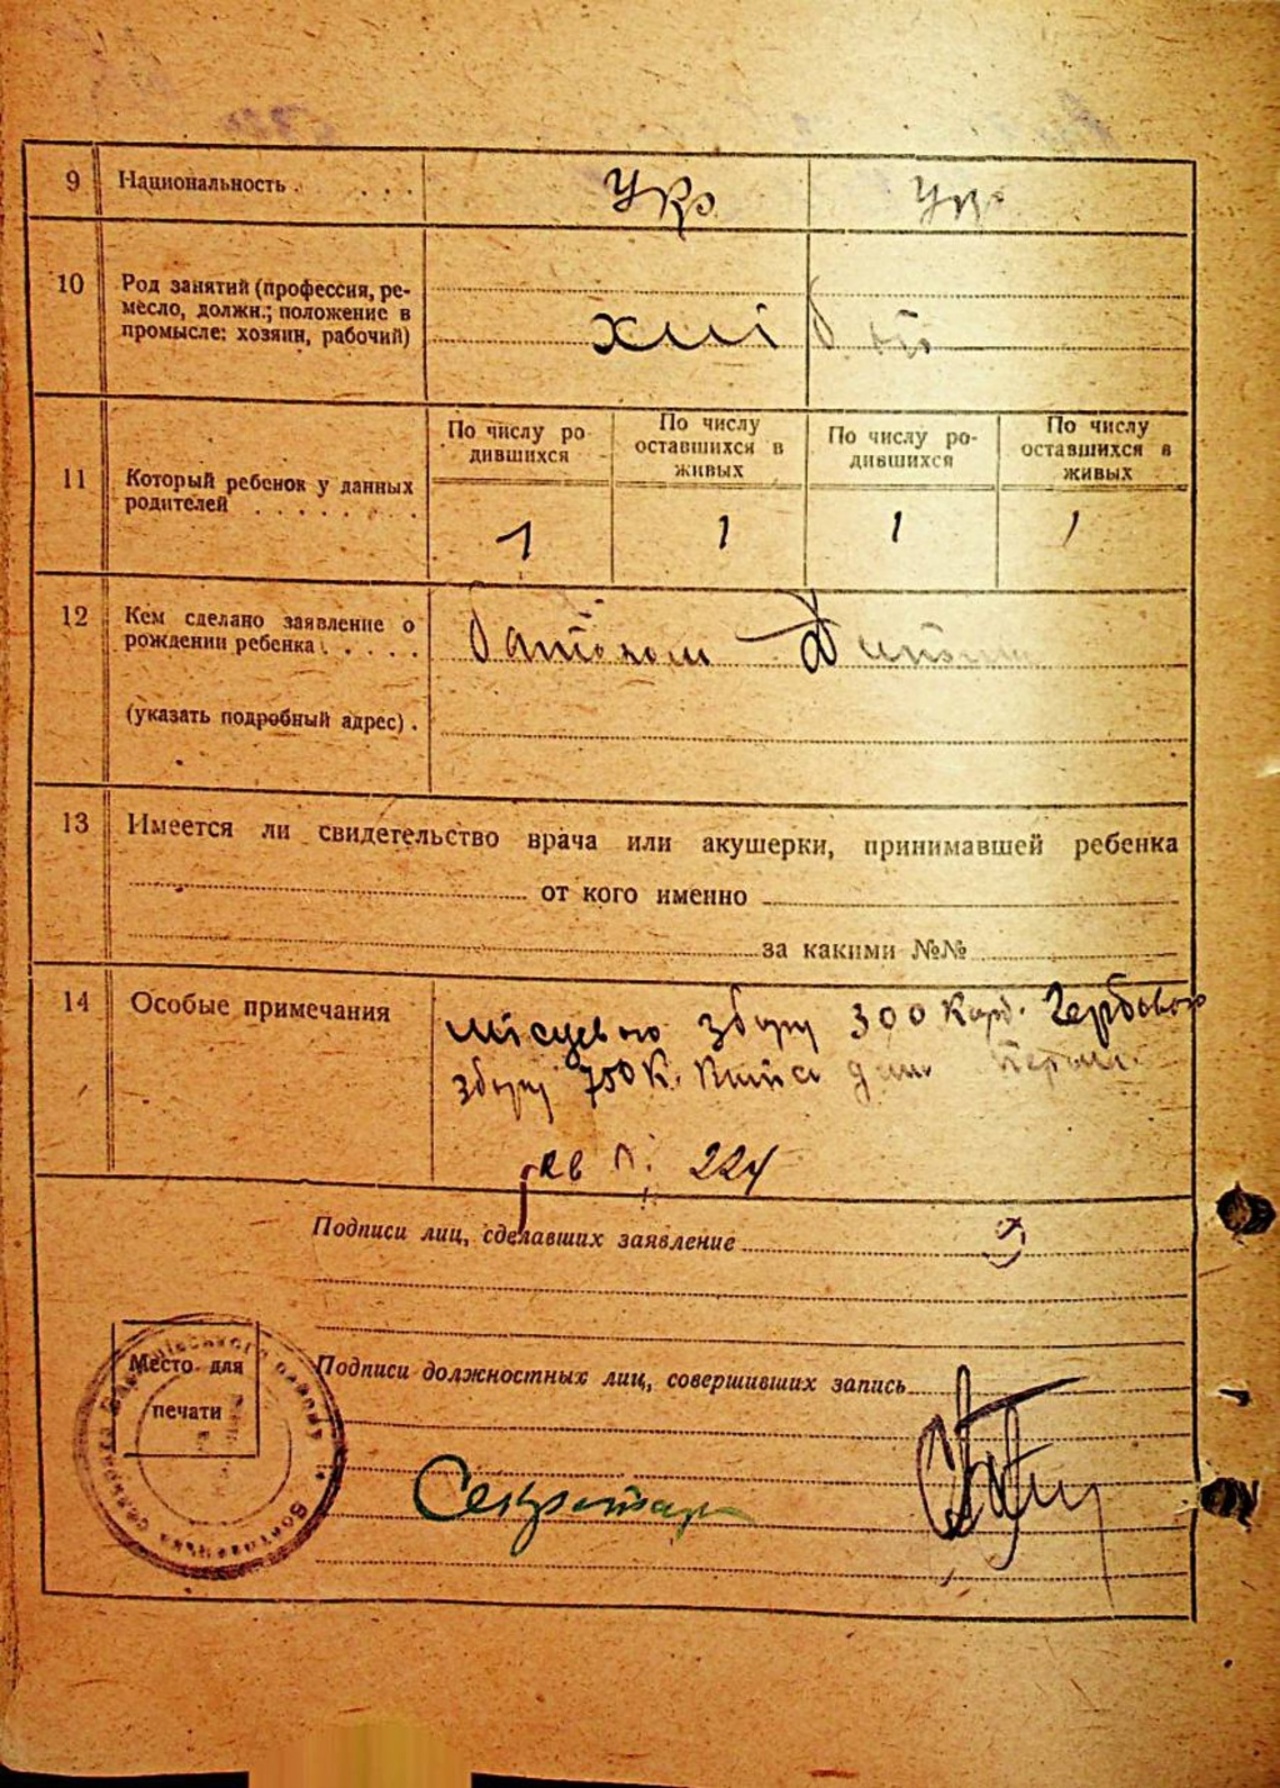 9 Национальность . . . . Укр Укр
10 Род занятий (профессия, ре-
месло, должн.; положение в
промысле: хозяин, рабочий)
11 Который ребенок у данных
родителей . . . . . . . .
По числу ро-
дившихся
По числу
оставшихся в
живых
По числу ро-
дившихся
По числу
оставшихся в
живых
1 1 1 1
12 Кем сделано заявление о
рождении ребенка . . . . .
(указать подробный адрес) .
13 Имеется ли свидетельство врача или акушерки, принимавшей ребенка
от кого именно
за какими №№
14 Особые примечания
збору 300 Гербового
збору 750 К.
кв 224
Подписи лиц, сделавших заявление
Место для
печати
Подписи должностных лиц, совершивших запись
Секретарь